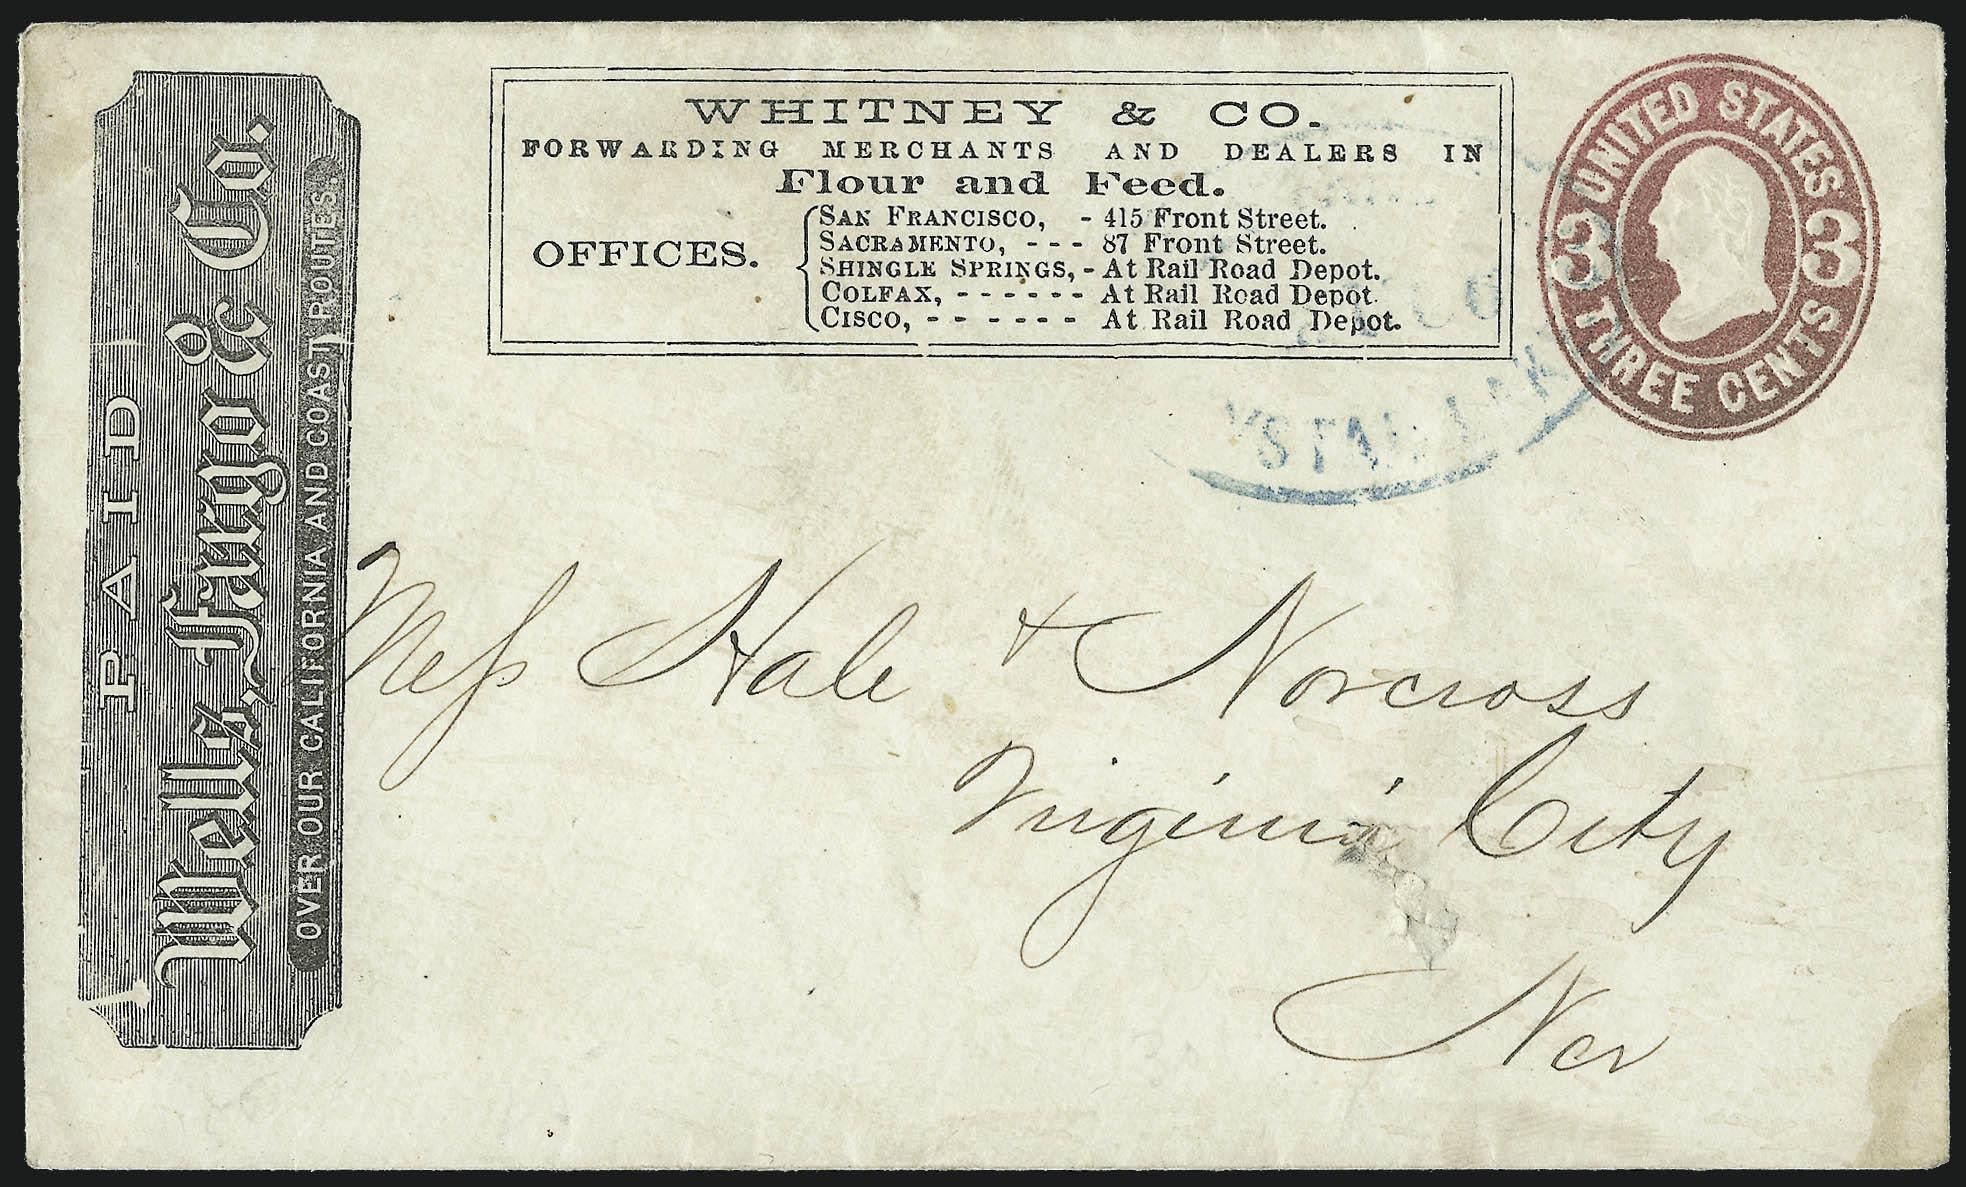 PAID
Wells, Fargo & Co.
OVER OUR CALIFORNIA AND COAST ROUTES.
WHITNEY & CO.
FORWARDING MERCHANTS AND DEALERS IN
Flour and Feed.
OFFICES.
SAN FRANCISCO, - 415 Front Street.
SACRAMENTO, - - - 87 Front Street.
SHINGLE SPRINGS, - At Rail Road Depot.
COLFAX, - - - - - - At Rail Road Depot.
CISCO, - - - - - - At Rail Road Depot.
UNITED STATES
3 3
THREE CENTS
Mess Hale & Norcross
Virginia City
Nev